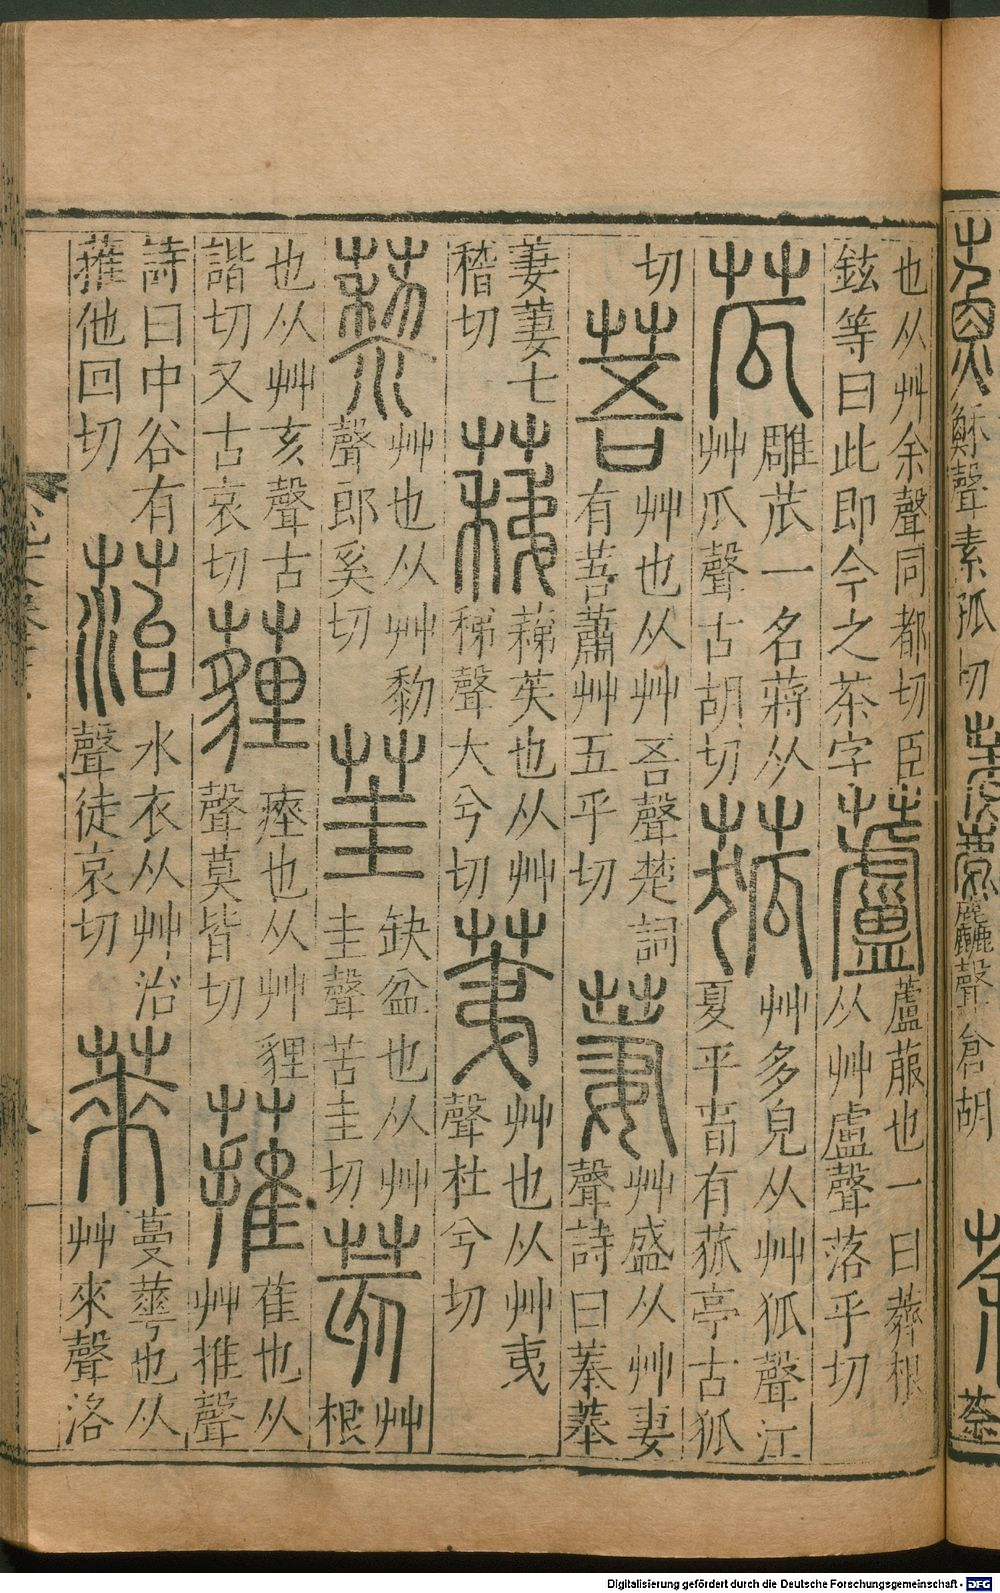 穌聲素孤切
麤聲倉胡
荼
也从艸余聲同都切臣
鉉等曰此即今之荼字
蘆
蘆菔也一曰薺根
从艸盧聲落乎切
苽
雕苽一名蔣从
艸瓜聲古胡切
艸多皃从艸狐聲江
夏平舂有亭古狐
切
䓊
艸也从艸吾聲楚詞
有䓊蕭艸五乎切
萋
艸盛从艸妻
聲詩曰菶菶
萋萋七
稽切
蕛
蕛苵也从艸
稊聲大兮切
荑
艸也从艸夷
聲杜兮切
藜
艸也从艸黎
聲郎奚切
茥
缺盆也从艸
圭聲苦圭切
荄
艸
根
也从艸亥聲古
諧切又古哀切
薶
瘞也从艸貍
聲莫皆切
蓷
萑也从
艸推聲
詩曰中谷有
蓷他回切
菭
水衣从艸治
聲徒哀切
萊
蔓華也从
艸來聲洛
Digitalisierung gefördert durch die Deutsche Forschungsgemeinschaft - DFG